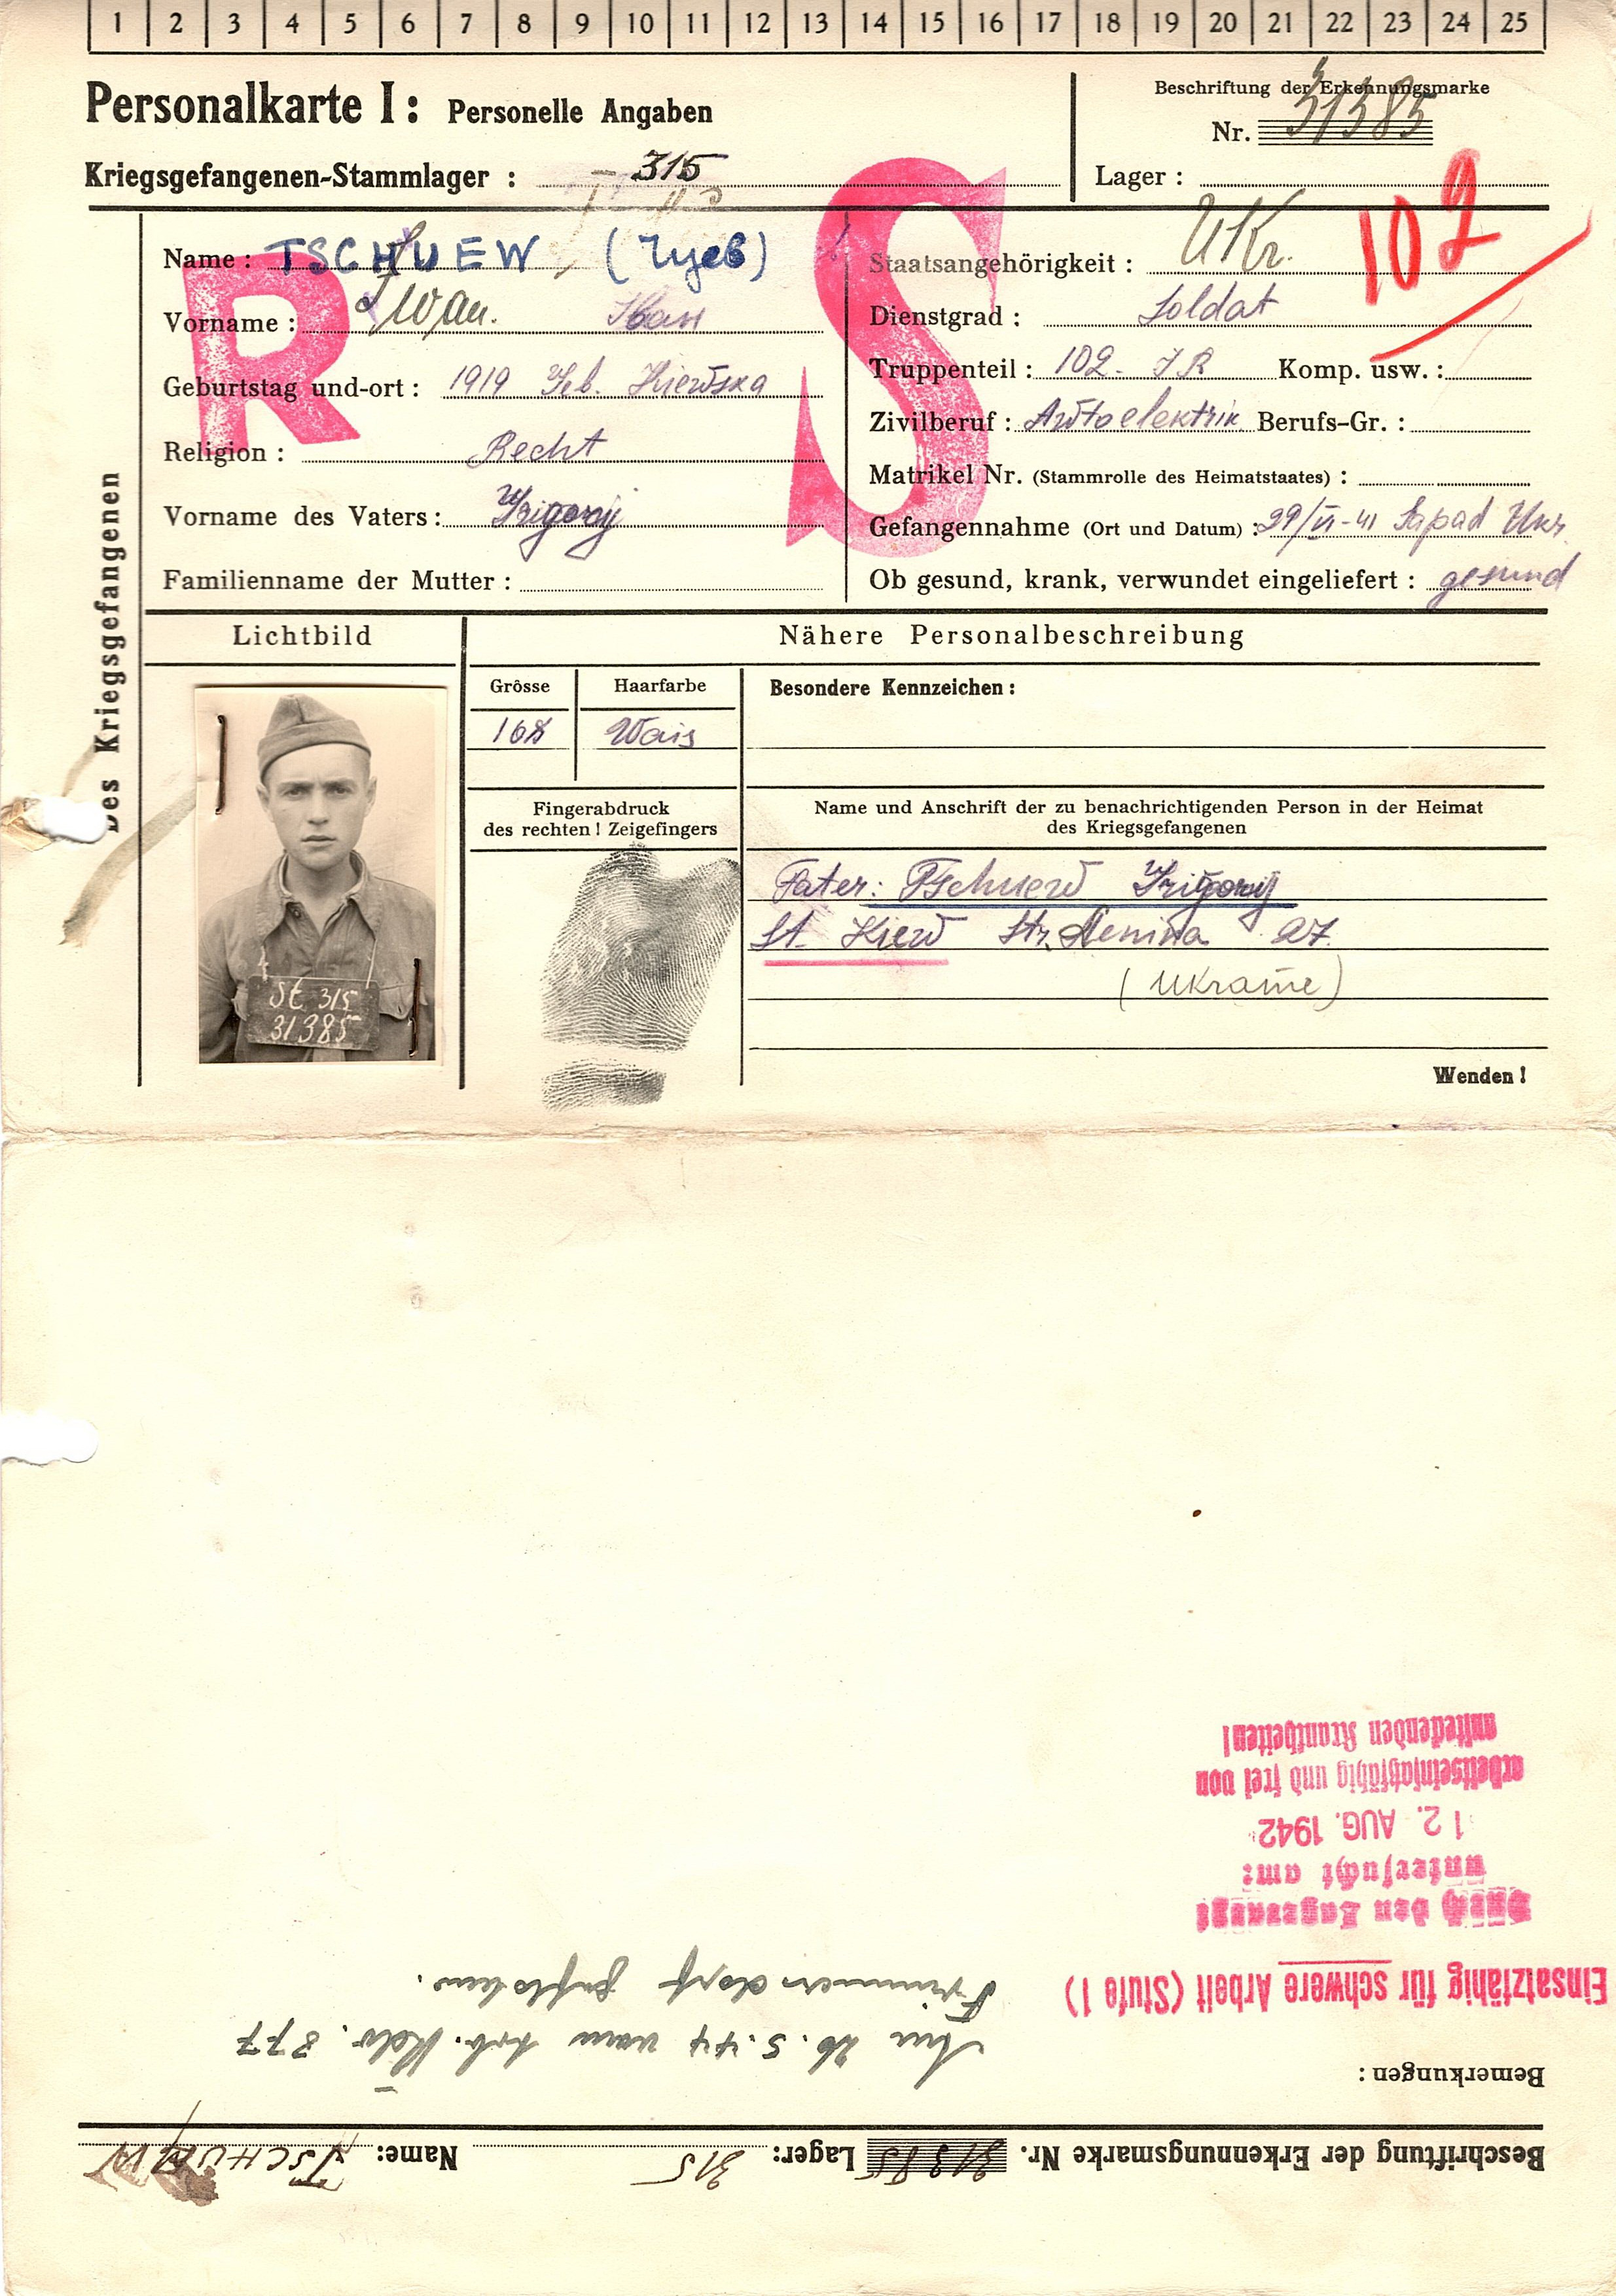 1 2 3 4 5 6 7 8 9 10 11 12 13 14 15 16 17 18 19 20 21 22 23 24 25
Personalkarte I: Personelle Angaben
Kriegsgefangenen-Stammlager : 315
Beschriftung der Erkennungsmarke
Nr. 31385
Lager :
102
R
S
Des Kriegsgefangenen
Name : TSCHUEW (Чуев)
Vorname : Iwan. Иван
Geburtstag und-ort : 1919 Geb. Kiewska
Religion : Recht
Vorname des Vaters : Grigorij
Familienname der Mutter :
Staatsangehörigkeit : Ukr.
Dienstgrad : Soldat
Truppenteil : 102. IR Komp. usw. :
Zivilberuf : Awtoelektrik Berufs-Gr. :
Matrikel Nr. (Stammrolle des Heimatstaates) :
Gefangennahme (Ort und Datum) : 29/VI-41 Sapad Ukr.
Ob gesund, krank, verwundet eingeliefert : gesund
Lichtbild
St. 315
31385
Nähere Personalbeschreibung
Grösse Haarfarbe Besondere Kennzeichen :
168 Wais
Fingerabdruck
des rechten ! Zeigefingers
Name und Anschrift der zu benachrichtigenden Person in der Heimat
des Kriegsgefangenen
Fater: Tschuew Grigorij
St. Kiew Str. Lenina 27.
(Ukraine)
Wenden !
Beschriftung der Erkennungsmarke Nr. 31385 Lager: 315 Name: TSCHUEW
Bemerkungen :
Am 26.5.44 vom Arb. Kdo. 877
Frimmersdorf geflohen.
Einsatzfähig für schwere Arbeit (Stufe 1)
Durch den Lagerarzt
untersucht am:
12. AUG. 1942
arbeitseinsatzfähig und frei von
ansteckenden Krankheiten!